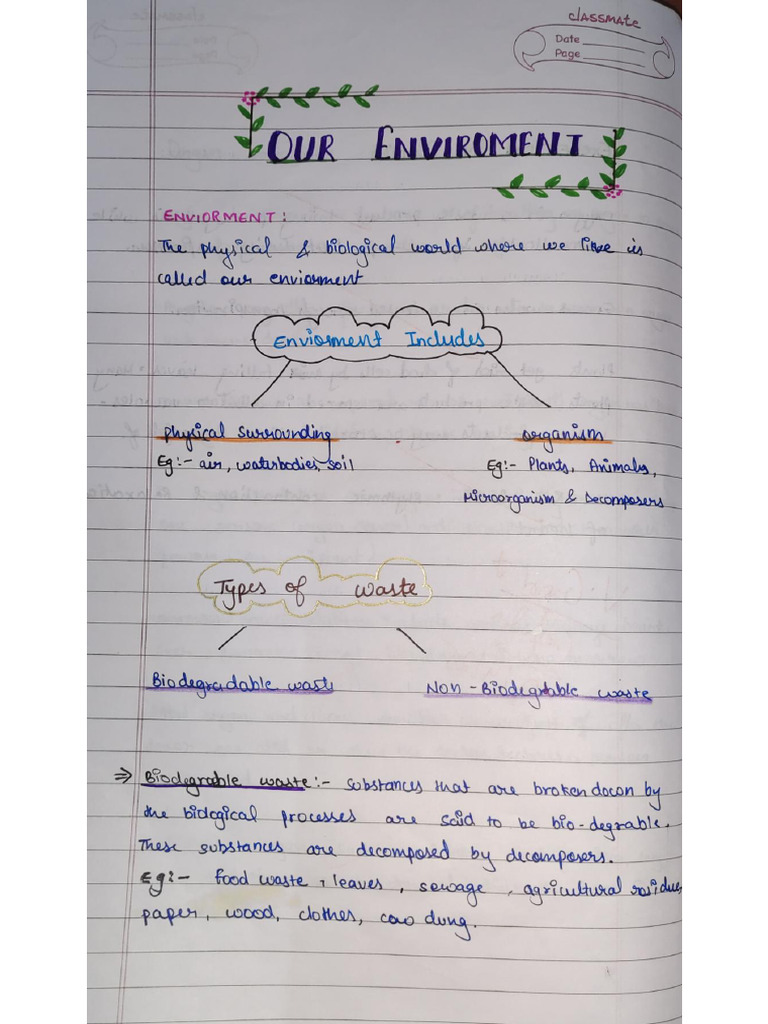 classmate
Date
Page
OUR ENVIROMENT
ENVIORMENT:
The physical & biological world where we live is
called our enviorment
Enviorment Includes
physical surrounding
organism
Eg:- air, waterbodies, soil
Eg:- Plants, Animals,
Microorganism & Decomposers
Types of waste
Biodegradable wast
Non-Biodegrable waste
⇒ Biodegrable waste:- substances that are broken down by
the biological processes are said to be bio-degrable.
These substances are decomposed by decomposers.
Eg:- food waste, leaves, sewage, agricultural residue,
paper, wood, clothes, cow dung.